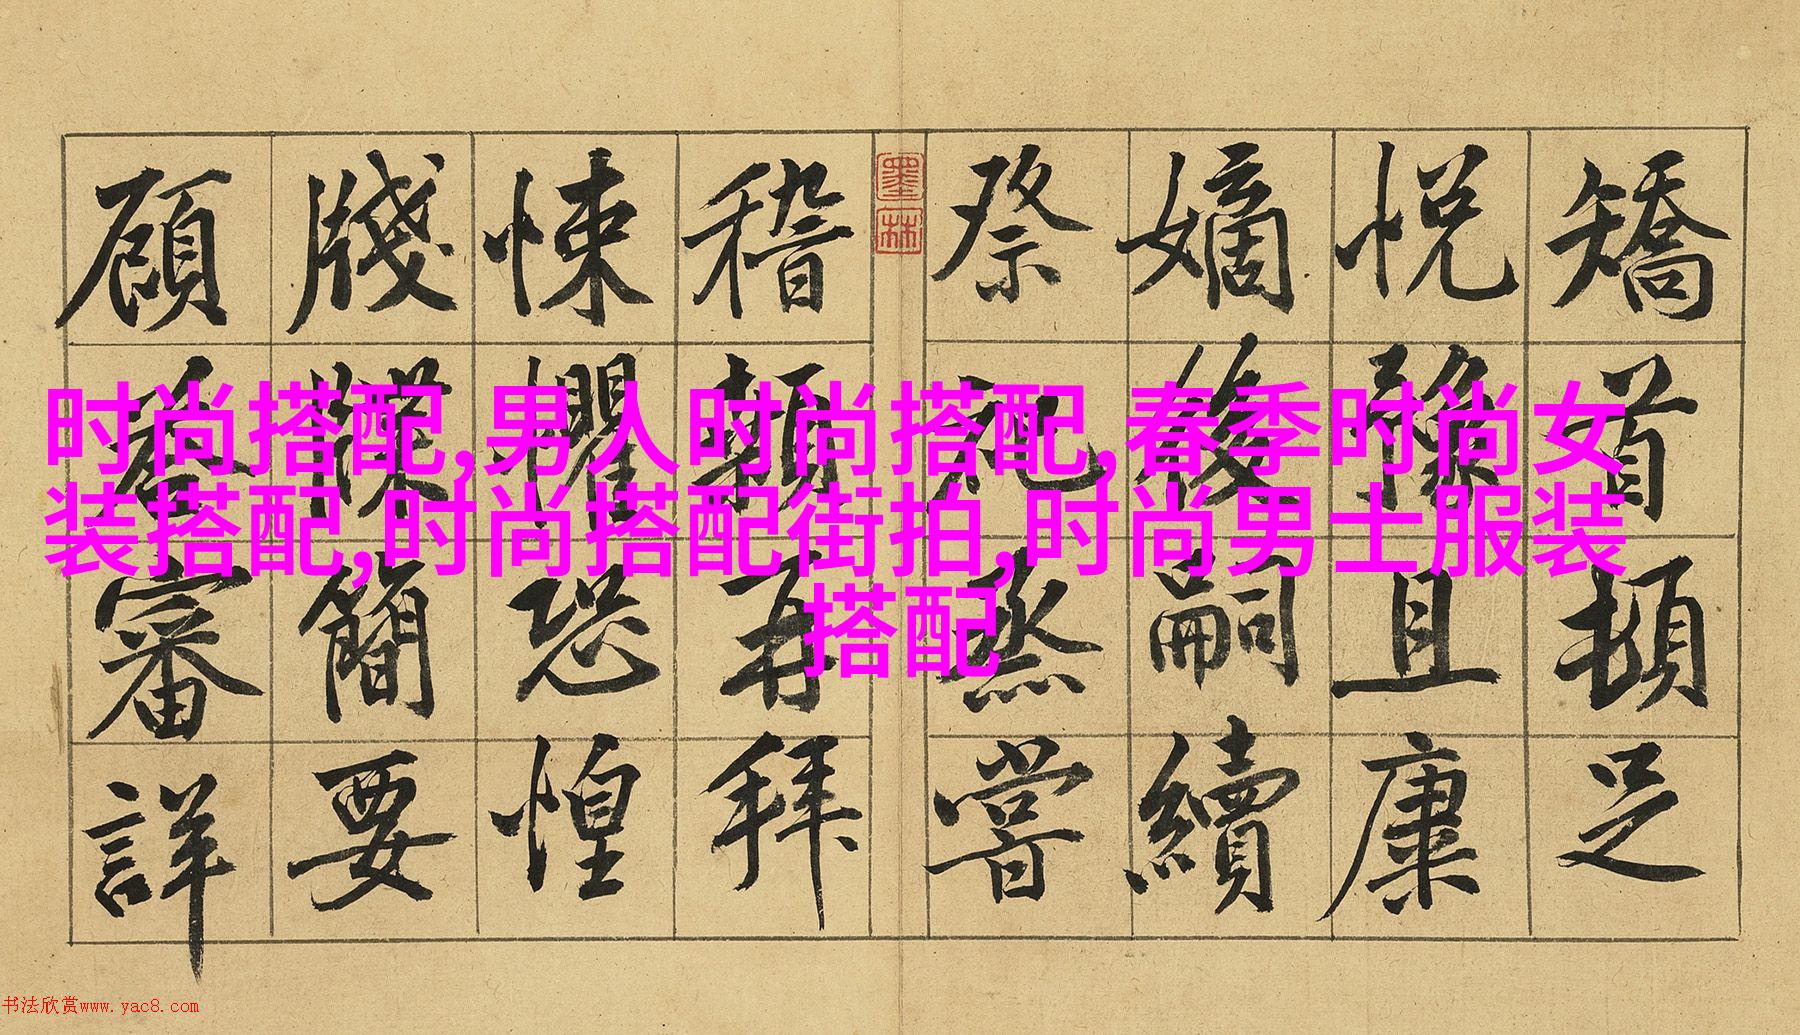 矯首頓足
悅豫且康
嫡後嗣續
祭祀蒸嘗
墨林
稽顙再拜
悚懼恐惶
牋牒簡要
顧答審詳
时尚搭配,男人时尚搭配,春季时尚女
装搭配,时尚搭配街拍,时尚男士服装
搭配
书法欣赏www.yac8.com